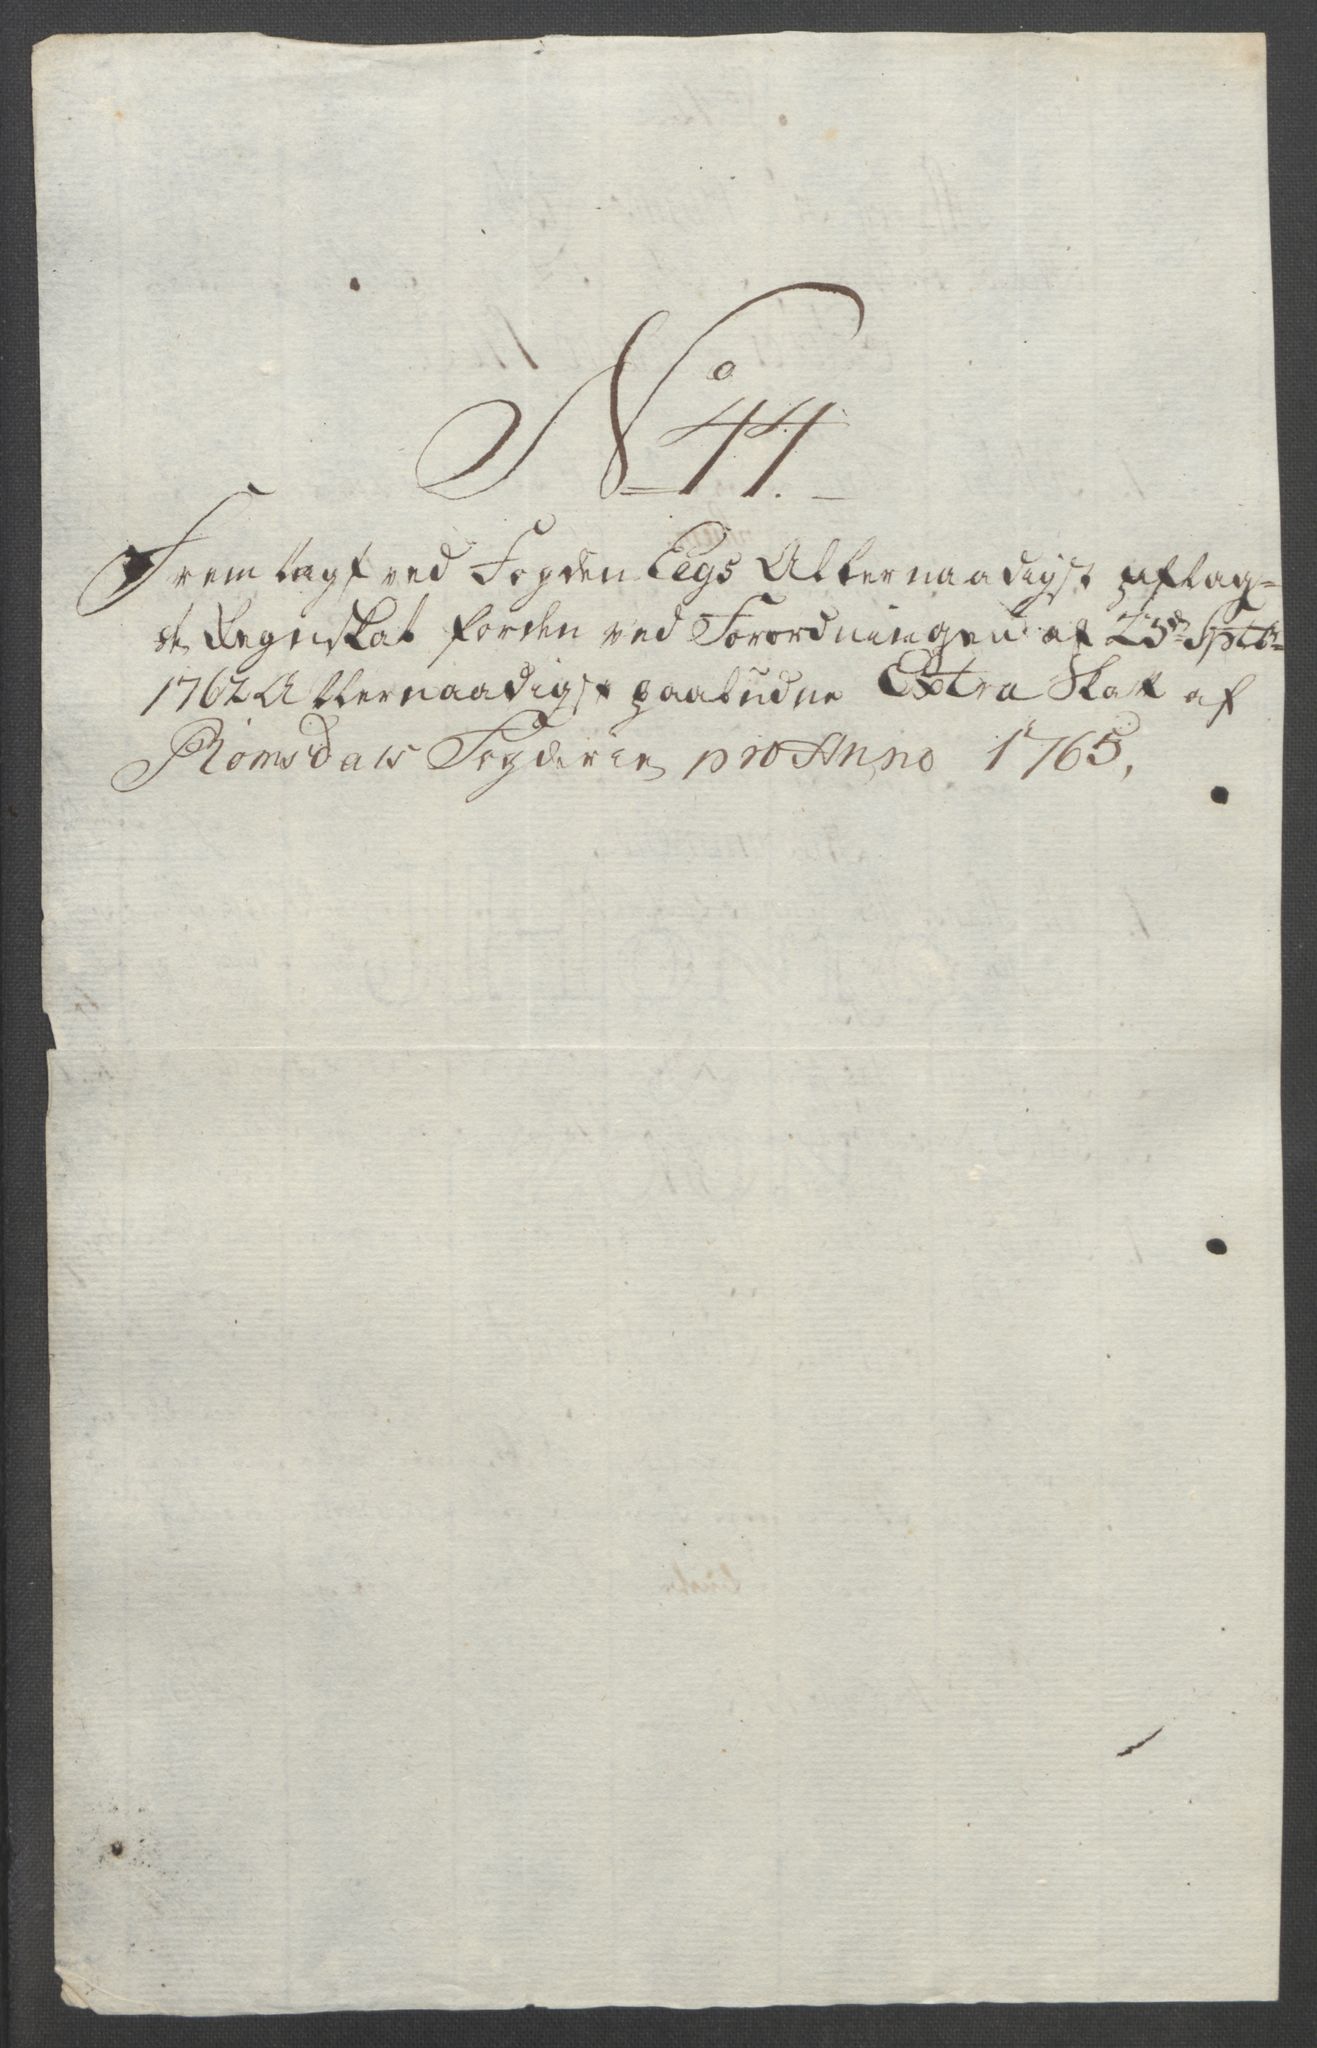 No 44.
Fremlagt ved Fogden Eegs Allernaadigst aflag-
de Regnskab for den ved Forordningen af 23de Septbr
1762 Allernaadigst paabudne Extra Skatt af
Romsdals Fogderie pro Anno 1765,